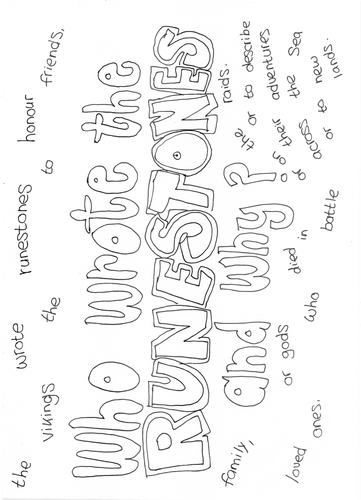 the vikings wrote the runestones to honour friends,
Who wrote the
RUNESTONES
and why?
raids.
the or to describe
of their adventures
of acoss the Sea
or to new
lands.
family, or gods died in
loved ones. who battle